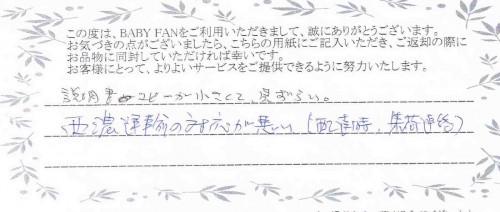 この度は、BABY FANをご利用いただきまして、誠にありがとうございます。
お気づきの点がございましたら、こちらの用紙にご記入いただき、ご返却の際に
お品物に同封していただければ幸いです。
お客様にとって、よりよいサービスをご提供できるように努力いたします。
説明書のコピーが小さくて見ずらい。
西濃運輸の対応が悪い(配達時、集荷連絡)